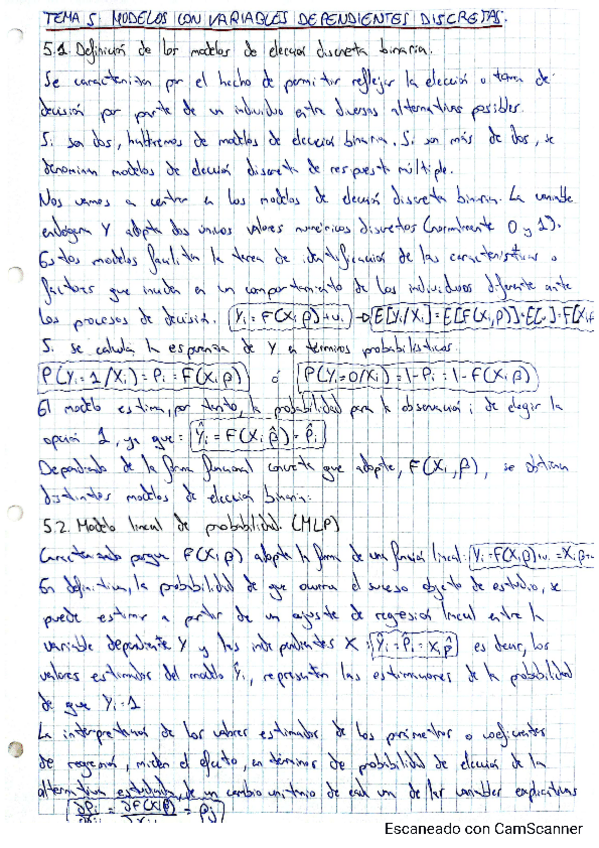 TEMA 5: MODELOS CON VARIABLES DEPENDIENTES DISCRETAS.
5.1. Definición de los modelos de elección discreta binaria.
Se caracterizan por el hecho de permitir reflejar la elección o toma de
decisión por parte de un individuo entre diversas alternativas posibles.
Si son dos, hablaremos de modelos de elección binaria. Si son más de dos, se
denominan modelos de elección discreta de respuesta múltiple.
Nos vamos a centrar en los modelos de elección discreta binaria. La variable
endógena Y adopta dos únicos valores numéricos discretos (normalmente 0 y 1).
Estos modelos facilitan la tarea de identificación de las características o
factores que inciden en un comportamiento de los individuos diferente ante
los procesos de decisión. Yi = F(Xi β) + ui → E[Yi/Xi] = E[F(Xi β)] + E[ ] = F(Xi
Si se calcula la esperanza de Y en términos probabilísticos:
P(Yi = 1/Xi) = Pi = F(Xi β) ó P(Yi = 0/Xi) = 1 - Pi = 1 - F(Xi β)
El modelo estima, por tanto, la probabilidad para la observación i de elegir la
opción 1, ya que: Ŷi = F(Xi β̂) = P̂i
Dependiendo de la forma funcional concreta que adopte, F(Xi, β), se obtienen
distintos modelos de elección binaria:
5.2. Modelo lineal de probabilidad. (MLP)
Caracterizado porque F(Xi β) adopta la forma de una función lineal: Yi = F(Xi β) + ui = Xi β +
En definitiva, la probabilidad de que ocurra el suceso objeto de estudio, se
puede estimar a partir de un ajuste de regresión lineal entre la
variable dependiente Y y las independientes X: Ŷi = P̂i = Xi β̂ es decir, los
valores estimados del modelo Ŷi, representan las estimaciones de la probabilidad
de que Yi = 1
La interpretación de los valores estimados de los parámetros o coeficientes
de regresión, miden el efecto, en términos de probabilidad de elección de la
alternativa estudiada, de un cambio unitario de cada una de las variables explicativas
∂Pi = ∂F(Xi β) = βj
Escaneado con CamScanner